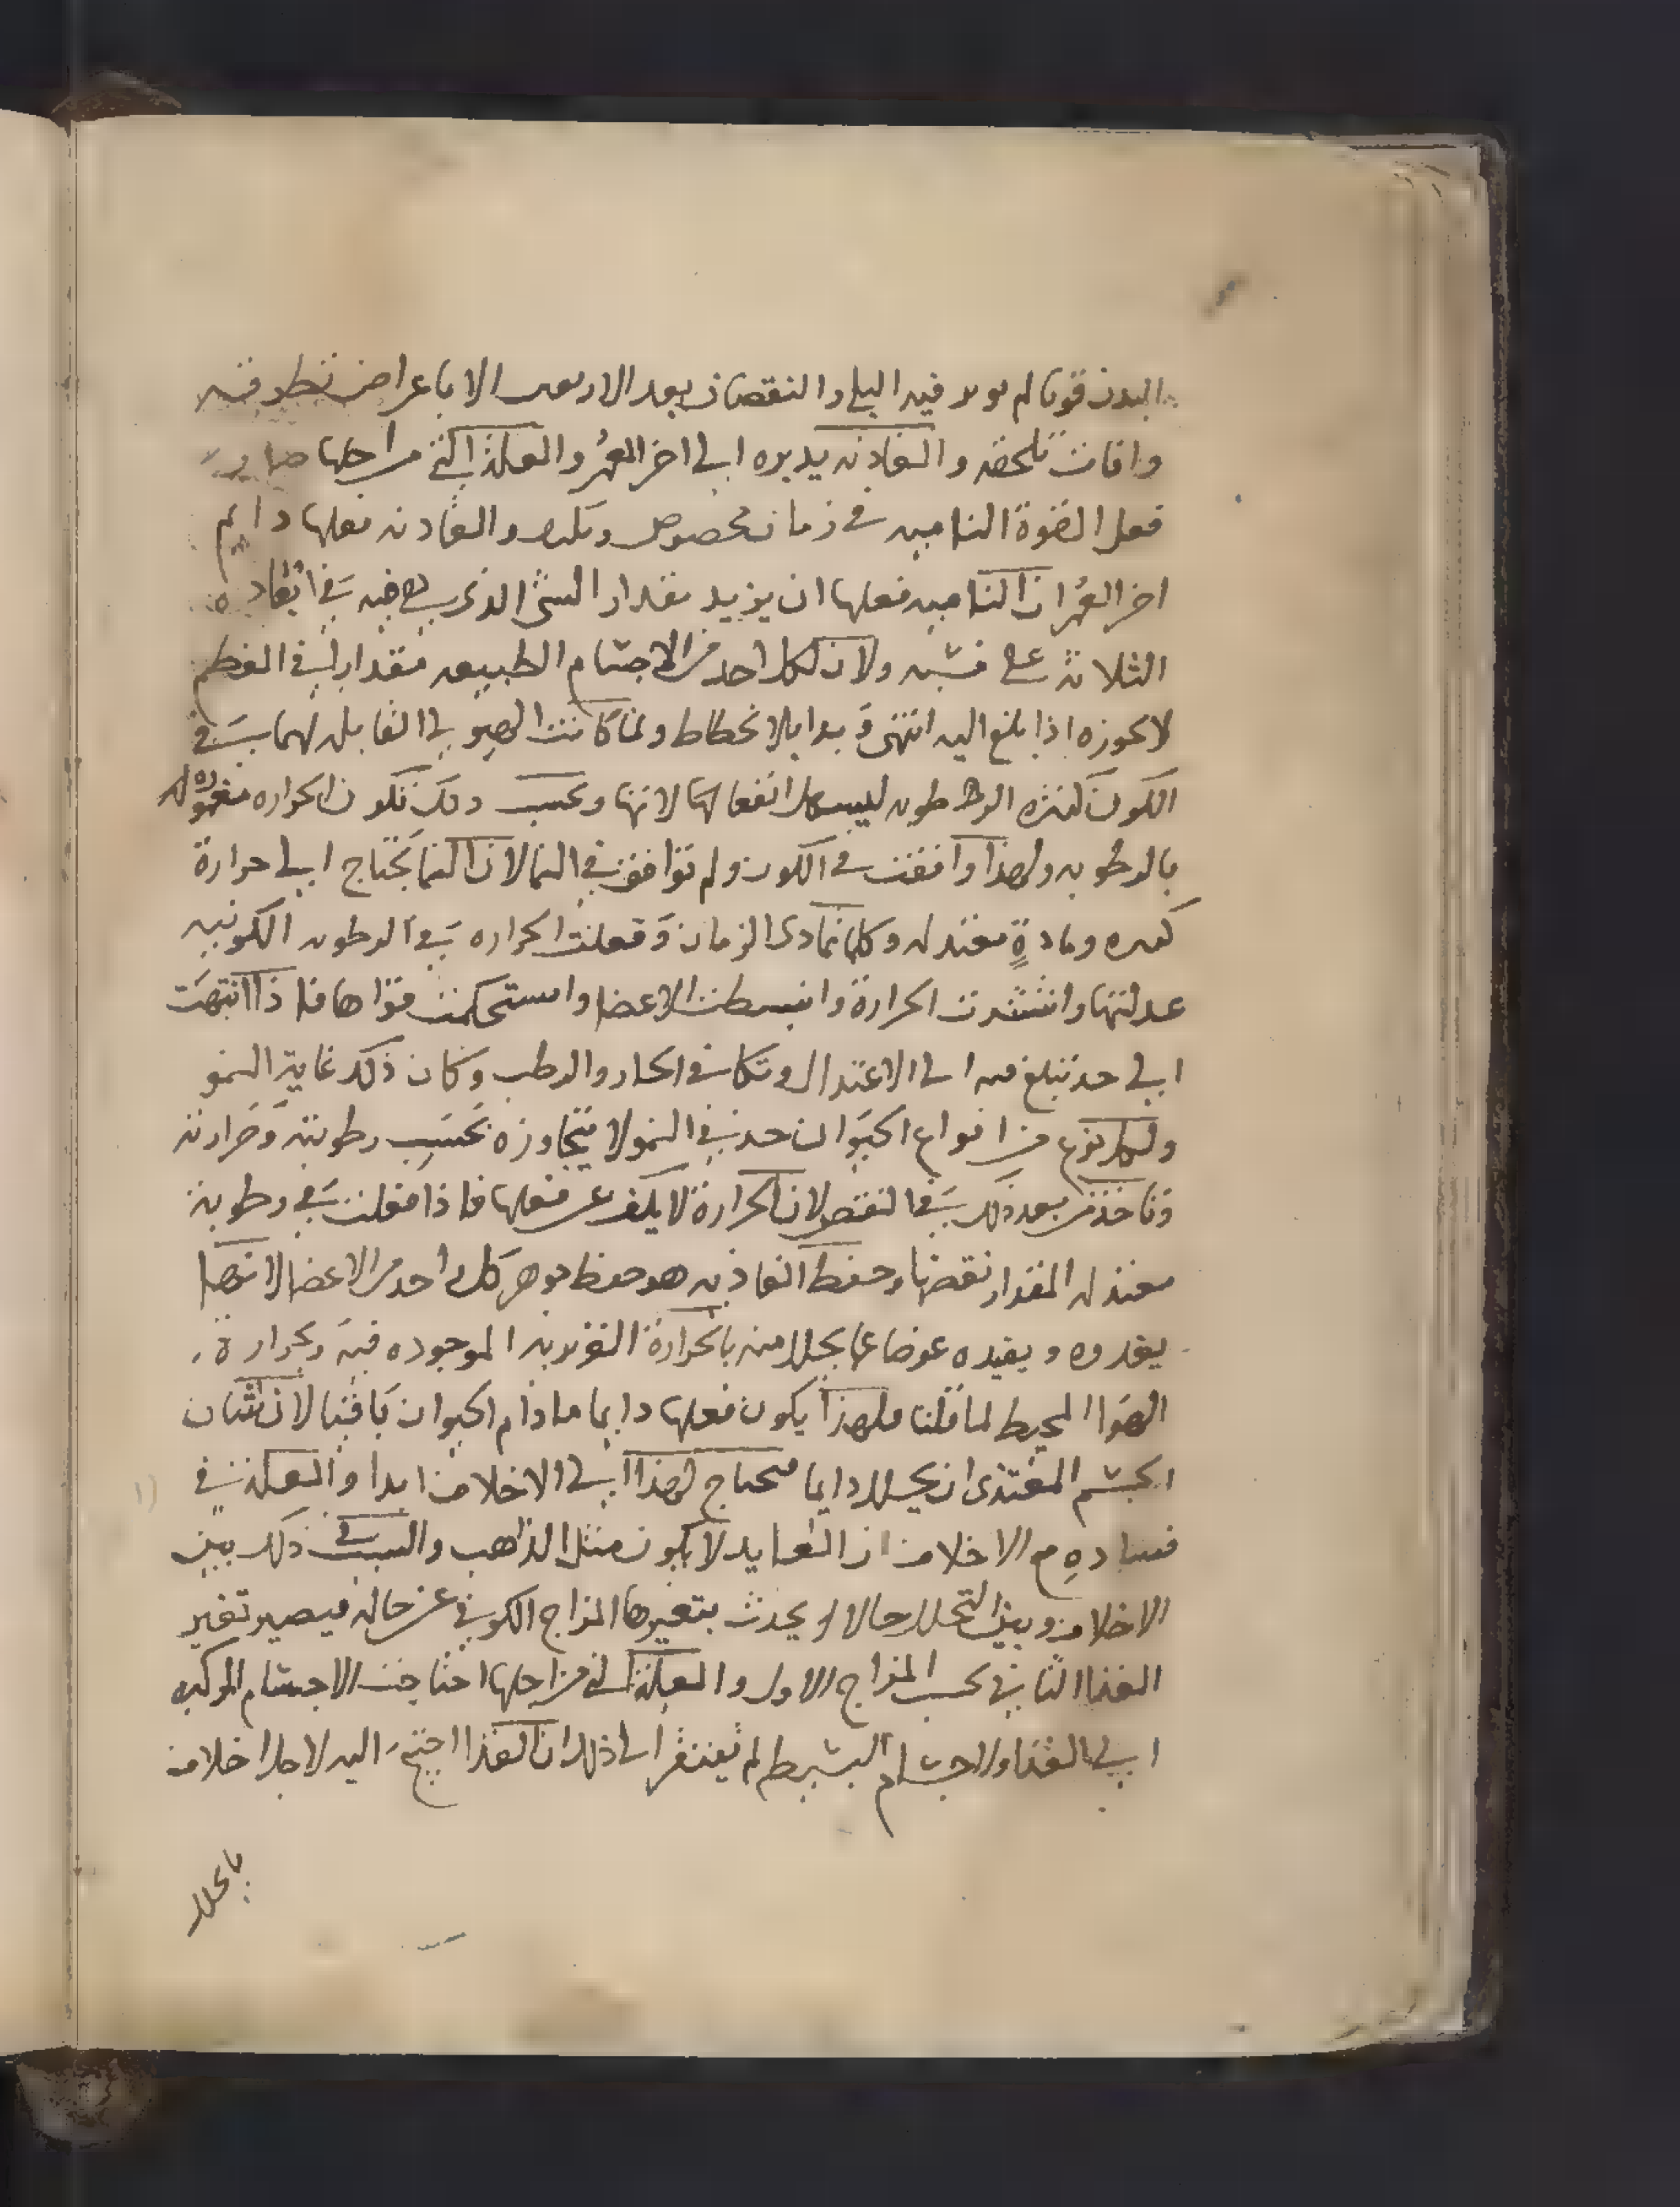 البدن قويا لم يولد فيه البلى والنقصان بعد الاربعين الا باعراض تطر فيه
وافات تلحقه والغاذيه يدبره الى اخر العمر والعلة التي من اجلها صار
فعل القوة الناميه في زمان مخصوص والغاذيه فعلها دايم
اخر العمر ان الناميه فعلها ان يزيد مقدار الشئ الذى هي فيه في اقطاره
الثلاثة على نسبه ولان لكل احد من الاجسام الطبيعيه مقدارا في العظم
لا يجوزه اذا بلغ اليه انتهى وبدا بالانحطاط ولما كانت الهيولى القابله لهما في
الكون كثيره الرطوبه ليسهل انفعالها لانها وبحسب ذلك تكون الحراره مغموره
بالرطوبه ولهذا وافقت في الكون ولم توافق في النما لان النما يحتاج الى حرارة
كثيره ومادةٍ معتدله وكلما تمادى الزمان وفعلت الحراره في الرطوبه الكونيه
عدلتها واشتدت الحرارة وانبسطت الاعضا واستحكمت قواها فاذا انتهت
الى حد تبلغ فيه الى الاعتدال وتكافى الحار والرطب وكان ذلك غاية النمو
ولكل نوع من انواع الحيوان حد في النمو لا يتجاوزه بحسب رطوبته وحرارته
وتاخذ من بعد ذلك في النقص لان الحرارة لا يكف عن فعلها فاذا فعلت في رطوبة
معتدله المقدار نقصتها وحفظ الغاذيه هو حفظ جوهر كل احد من الاعضا لانها
يغدوه ويفيده عوضا عما يحلل منه بالحرارة الغريزيه الموجوده فيه وبحرارة
الهوا المحيط لما قلنا فلهذا يكون فعلها دايما ما دام الحيوان باقيا لان شان
الجسم المغتذى ان يحلل دايما فيحتاج لهذا الى الاخلاف ابدا والعلة في
فساده مع الاخلاف ان العايد لا يكون مثل الذاهب والسبب في ذلك بين
الاخلاف وبين التحلل حالا يحدث بتغيرها المزاج الكوني عن حاله فيصير تغير
الغذا الثاني بحسب المزاج الاول والعلة التي من اجلها احتاجت الاجسام المركبه
الى الغذا والاجسام البسيط لم تفتقر الى ذلك ان الغذا احتيج اليه لاجل اخلاف
ما تحلل